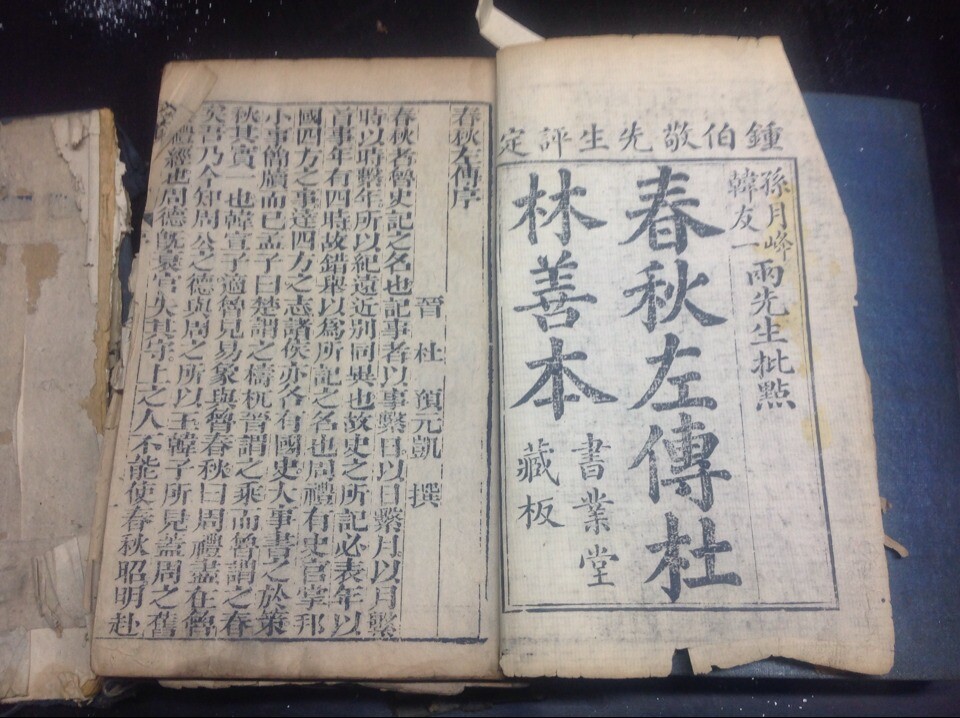 鍾伯敬先生評定
孫月峰
韓友一
兩先生批點
春秋左傳杜
林善本
書業堂
藏板
春秋左傳序
晉 杜 預元凱 撰
春秋者魯史記之名也記事者以事繫日以日繫月以月繫
時以時繫年所以紀遠近別同異也故史之所記必表年以
首事年有四時故錯舉以爲所記之名也周禮有史官掌邦
國四方之事達四方之志諸侯亦各有國史大事書之於策
小事簡牘而已孟子曰楚謂之檮杌晉謂之乘而魯謂之春
秋其實一也韓宣子適魯見易象與魯春秋曰周禮盡在魯
矣吾乃今知周公之德與周之所以王韓子所見蓋周之舊
禮經也周德既衰官失其守上之人不能使春秋昭明赴